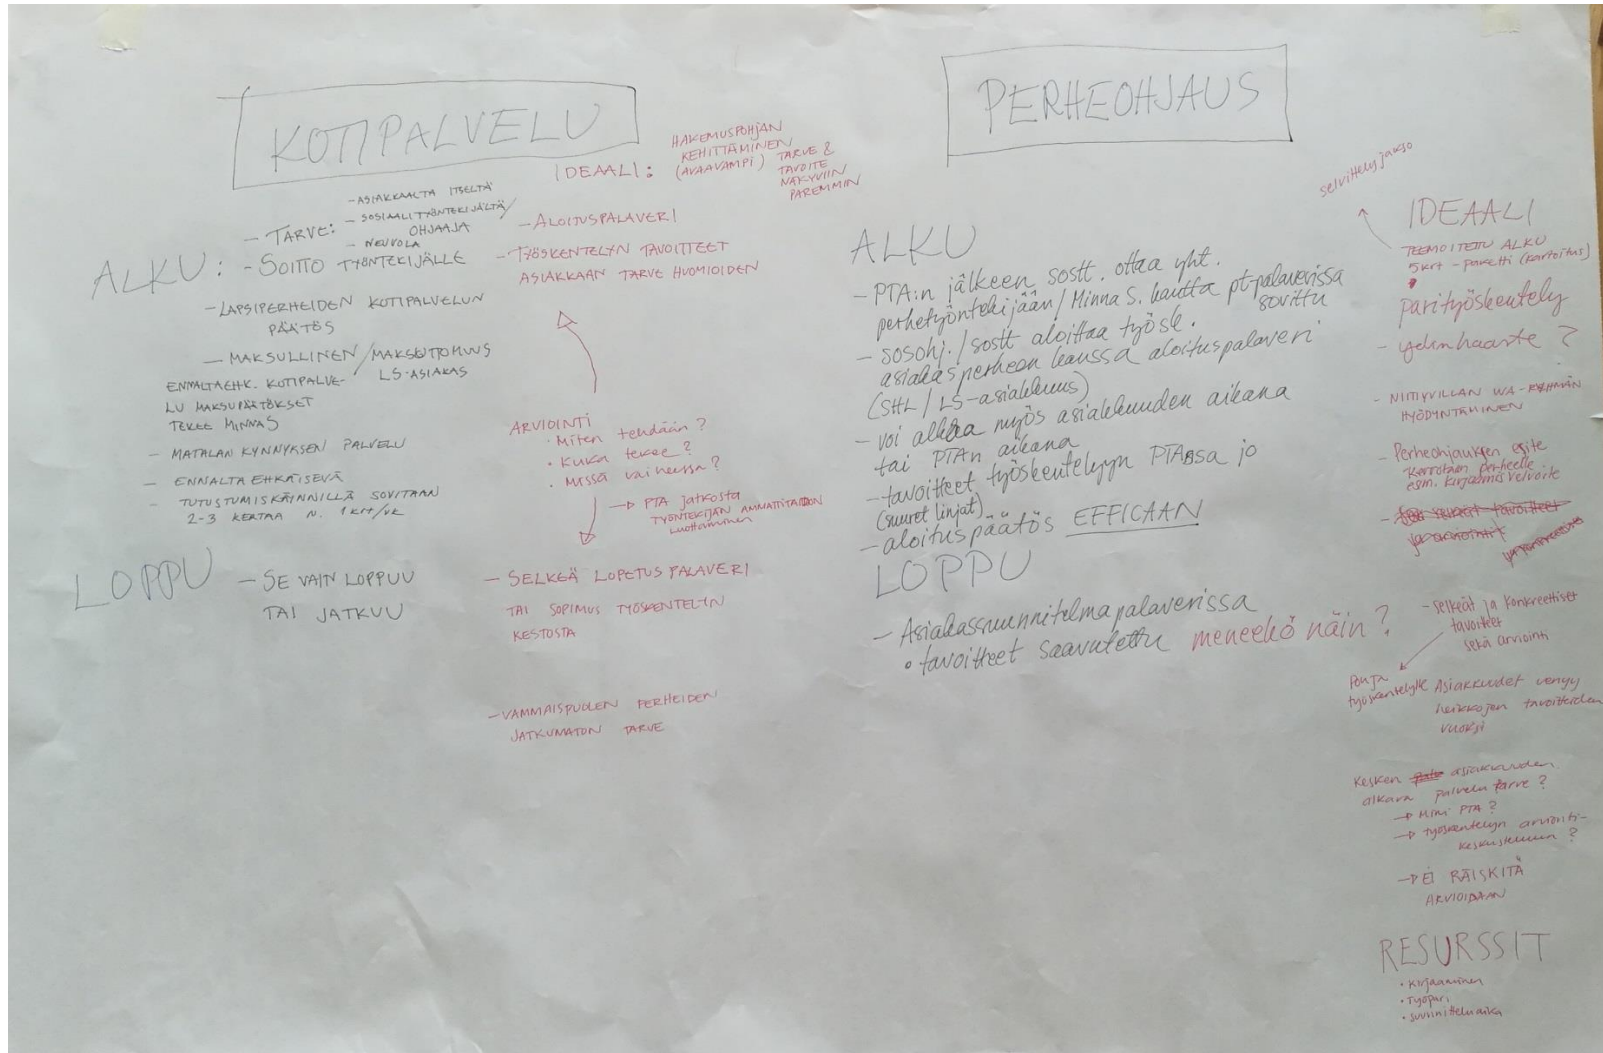 KOTIPALVELU
IDEAALI:
HAKEMUSPOHJAN
KEHITTÄMINEN
(AVAAVAMPI)
TARVE &
TAVOITE
NÄKYVIIN
PAREMMIN
ALKU:
- TARVE:
- ASIAKKAALTA ITSELTÄ
- SOSIAALITYÖNTEKIJÄLTÄ/
OHJAAJA
- NEUVOLA
- SOITTO TYÖNTEKIJÄLLE
- LAPSIPERHEIDEN KOTIPALVELUN
PÄÄTÖS
- MAKSULLINEN/MAKSUTTOMUUS
LS-ASIAKAS
ENNALTAEHK. KOTIPALVE-
LU MAKSUPÄÄTÖKSET
TEKEE MINNA S
- MATALAN KYNNYKSEN PALVELU
- ENNALTA EHKÄISEVÄ
- TUTUSTUMISKÄINNILLÄ SOVITAAN
2-3 KERTAA N. 1krt/vk
- ALOITUSPALAVERI
- TYÖSKENTELYN TAVOITTEET
ASIAKKAAN TARVE HUOMIOIDEN
ARVIOINTI
• Miten tehdään?
• Kuka tekee?
• Missä vaiheessa?
→ PTA jatkosta
TYÖNTEKIJÄN AMMATITAIDON
luottaminen
LOPPU
- SE VAIN LOPPUU
TAI JATKUU
- SELKEÄ LOPETUS PALAVERI
TAI SOPIMUS TYÖSKENTELYN
KESTOSTA
- VAMMAISPUOLEN PERHEIDEN
JATKUMATON TARVE
PERHEOHJAUS
ALKU
- PTA:n jälkeen sostt. ottaa yht.
perhetyöntekijään/Minna S. kautta pt-palaverissa
sovittu
- sosohj./sostt aloittaa työsk.
asiakasperheen kanssa aloituspalaveri
(SHL/LS-asiakkuus)
- voi alkaa myös asiakkuuden aikana
tai PTAn aikana
- tavoitteet työskentelyyn PTAssa jo
(suuret linjat)
- aloituspäätös EFFICAAN
LOPPU
- Asiakassuunnitelmapalaverissa
• tavoitteet saavutettu meneekö näin?
selvittelyjakso
IDEAALI
TEEMOITETTU ALKU
5krt - paketti (kartoitus)
parityöskentely
- ydinhaaste?
- NIITTYVILLAN WA-RYHMÄN
HYÖDYNTÄMINEN
- Perheohjauksen esite
kerrotaan perheelle
esm. kirjaamisvelvoite
- selkeät tavoitteet
ja arviointi
- selkeät ja konkreettiset
tavoitteet
sekä arviointi
Pohja
työskentelylle
Asiakkuudet venyy
heikkojen tavoitteiden
vuoksi
Kesken asiakkuuden
alkava palvelu tarve?
→ Mini PTA?
→ työskentelyn arviointi-
keskusteluun?
→ EI RÄISKITÄ
ARVIOIDAAN
RESURSSIT
• Kirjaaminen
• Työpari
• suunnitteluaika